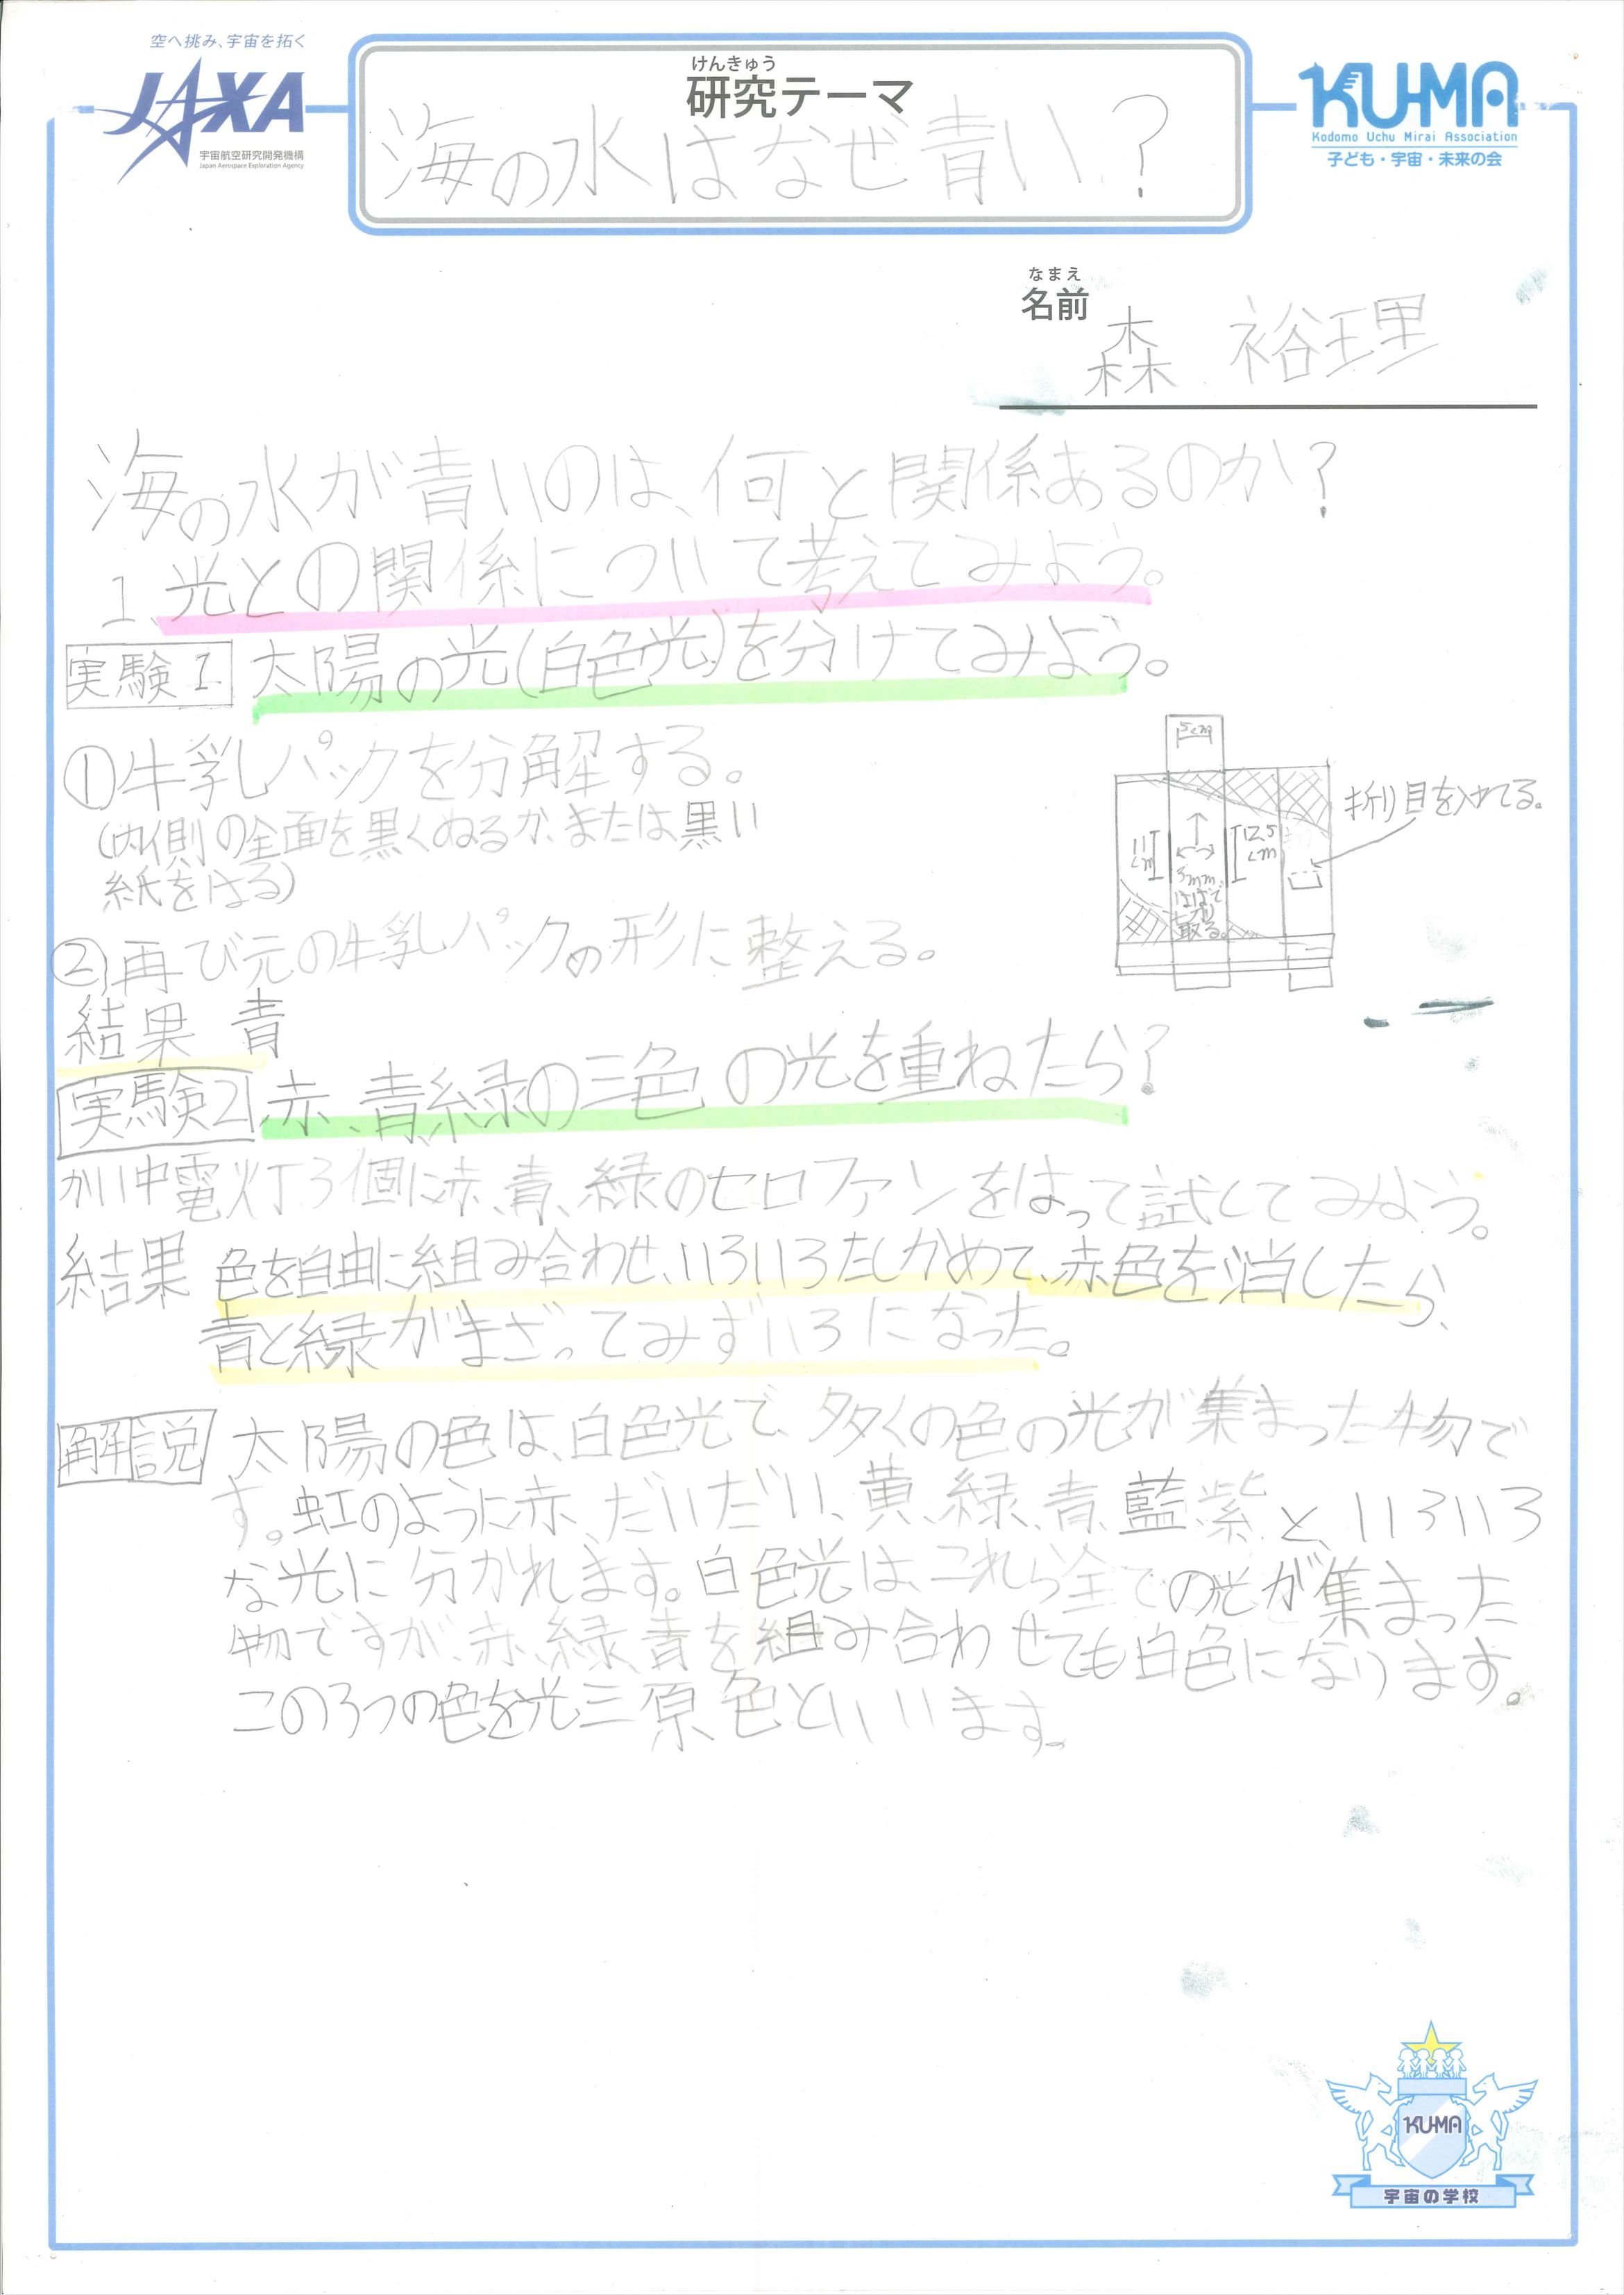 空へ挑み、宇宙を拓く
JAXA
宇宙航空研究開発機構
Japan Aerospace Exploration Agency
けんきゅう
研究テーマ
海の水はなぜ青い?
KU-MA
Kodomo Uchu Mirai Association
子ども・宇宙・未来の会
なまえ
名前
森 裕理
海の水が青いのは、何と関係あるのか?
1、光との関係について考えてみよう。
実験1 太陽の光(白色光)を分けてみよう。
①牛乳パックを分解する。
(内側の全面を黒くぬるか、または黒い
紙をはる)
②再び元の牛乳パックの形に整える。
5cm
折り目を入れてる。
11cm
5mm
はばで
切り
取る。
12.5cm
結果 青
実験2 赤、青、緑の三色の光を重ねたら?
かい中電灯3個に赤、青、緑のセロファンをはって試してみよう。
結果 色を自由に組み合わせ、いろいろたしかめて、赤色を消したら、
青と緑がまざってみずいろになった。
解説 太陽の色は、白色光で、多くの色の光が集まった物で
す。虹のように赤、だいだい、黄、緑、青、藍、紫と、いろいろ
な光に分かれます。白色光は、これら全ての光が集まった
物ですが、赤、緑、青を組み合わせても白色になります。
この3つの色を光三原色といいます。
KU-MA
宇宙の学校